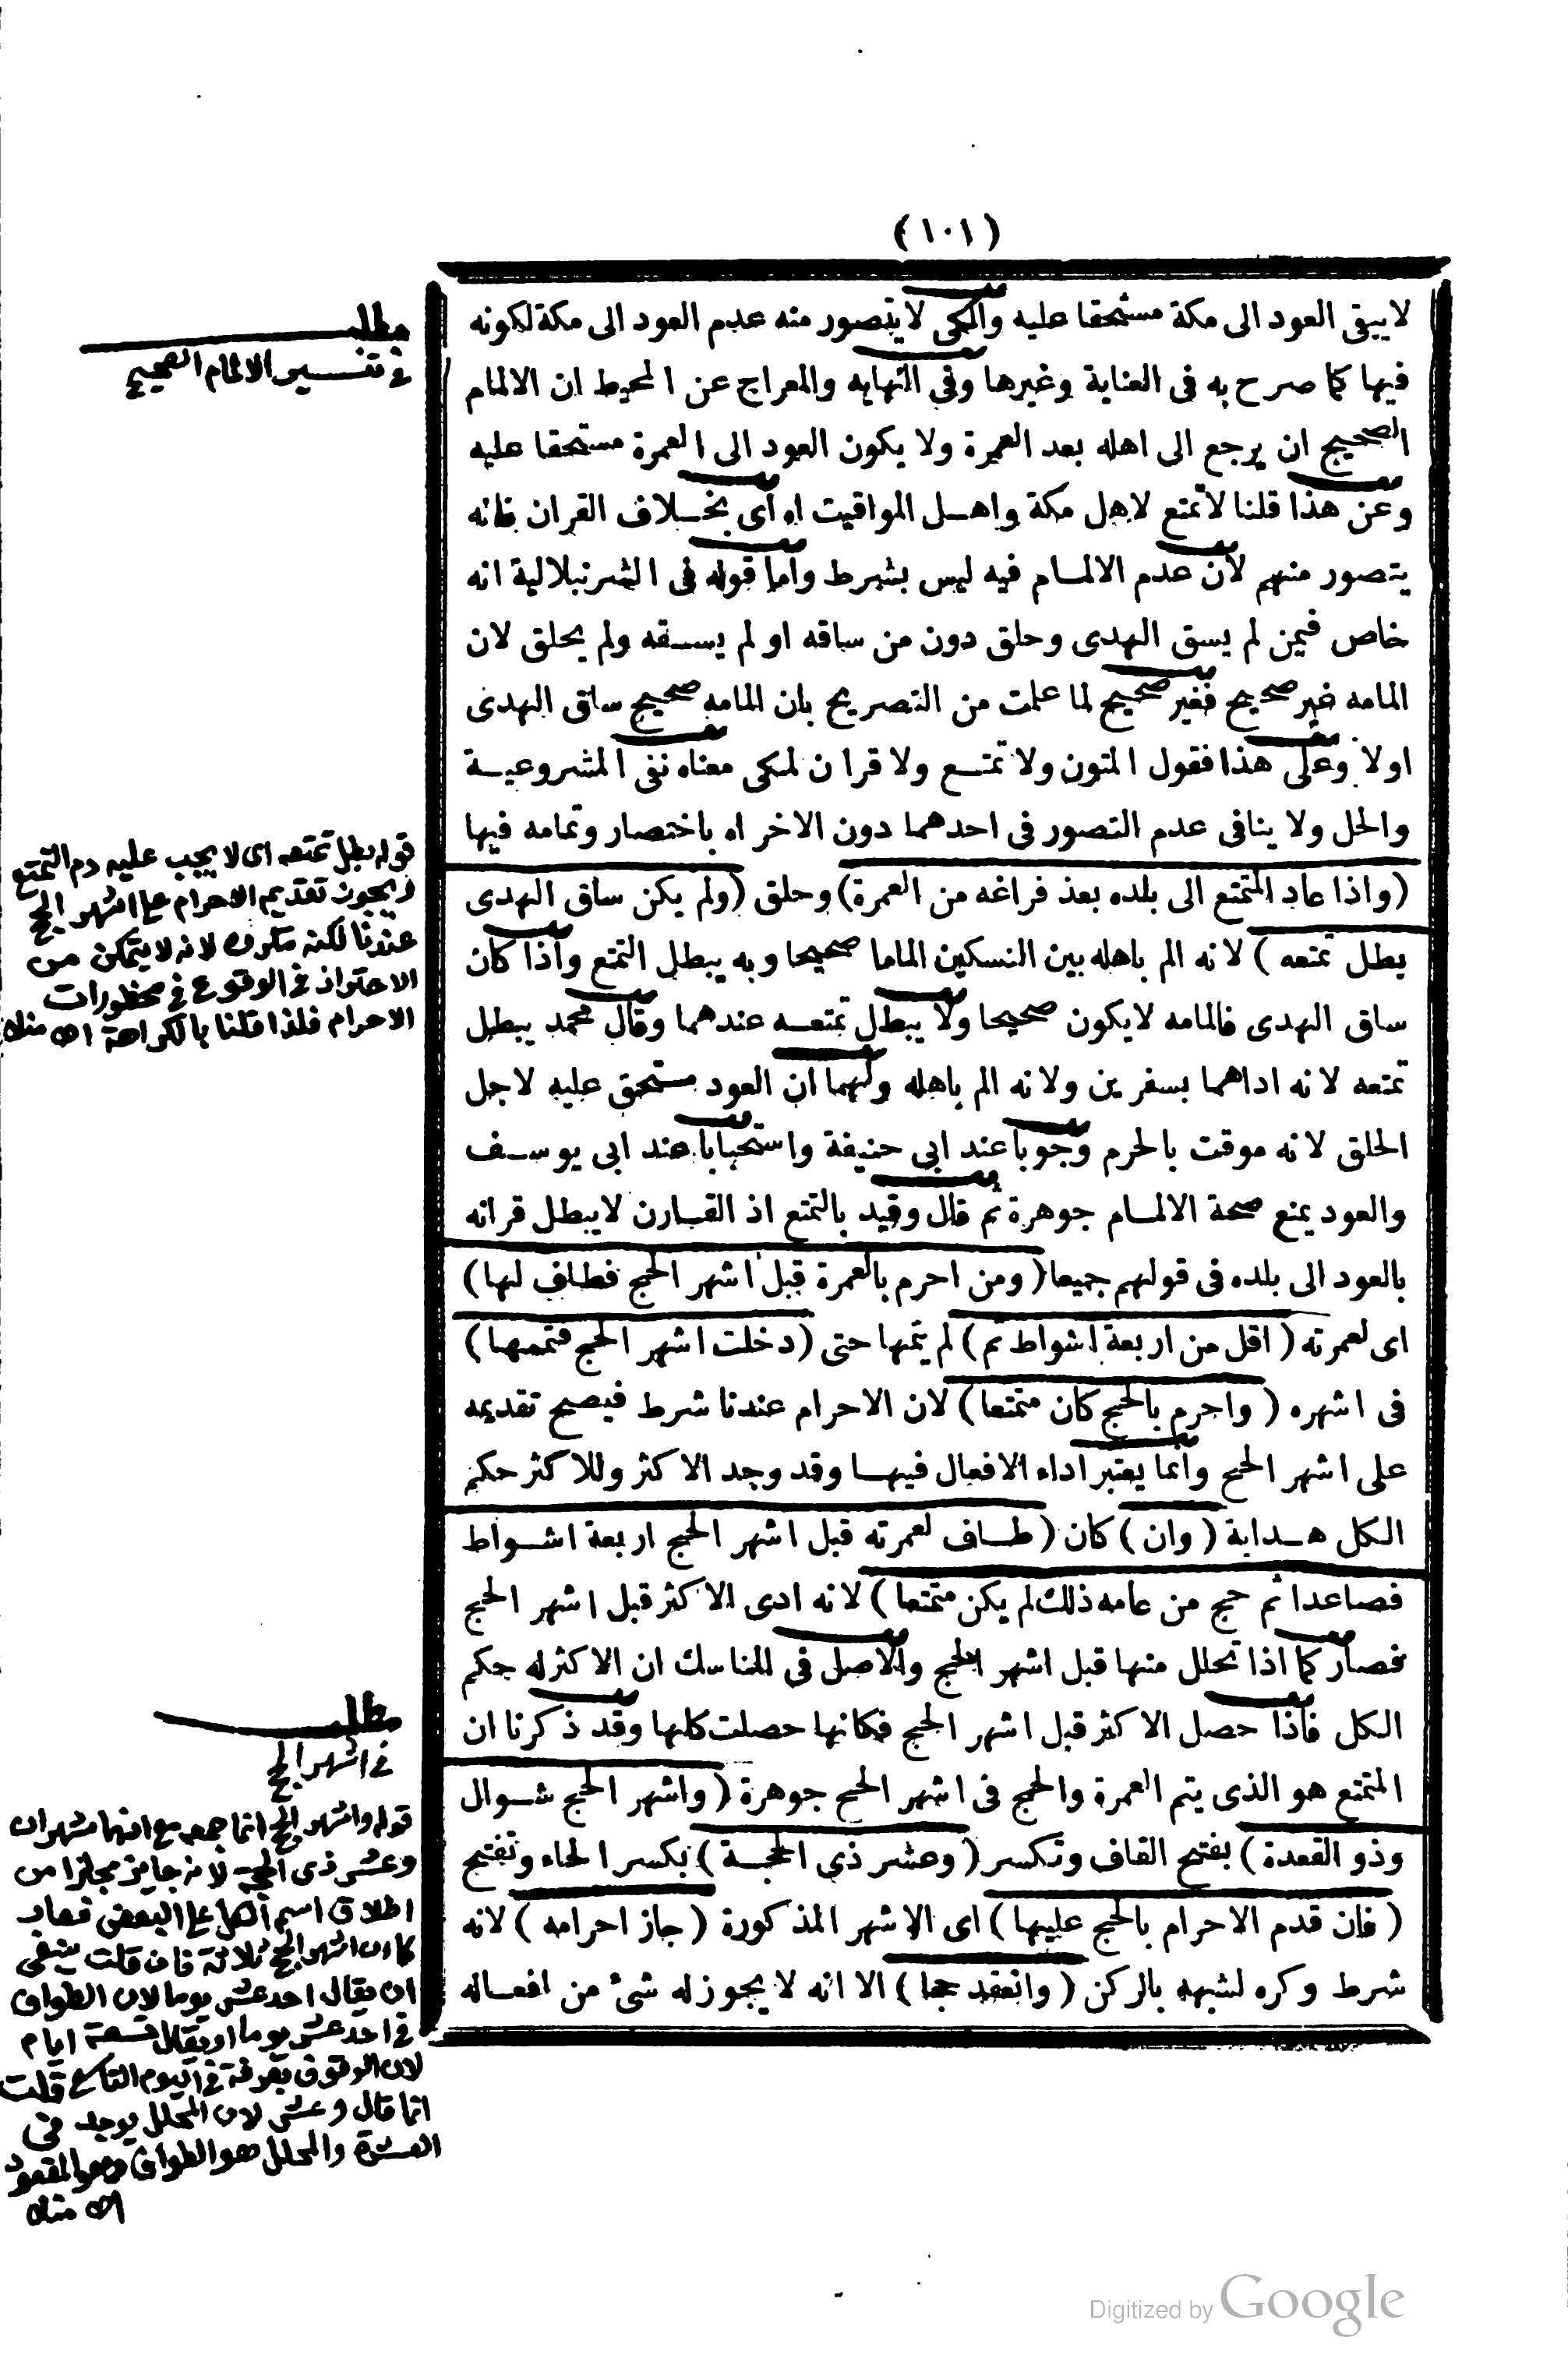 (١٠١)
لايبقى العود الى مكة مستحقا عليه والمكى لايتصور منه عدم العود الى مكة لكونه
فيها كما صرح به فى العناية وغيرها وفى النهايه والمعراج عن المحيط ان الالمام
الصحيح ان يرجع الى اهله بعد العمرة ولا يكون العود الى العمرة مستحقا عليه
وعن هذا قلنا لاتمتع لاهل مكة واهل المواقيت اه اى بخلاف القران فانه
يتصور منهم لان عدم الالمام فيه ليس بشرط واما قوله فى الشرنبلالية انه
خاص فيمن لم يسق الهدى وحلق دون من ساقه او لم يسقه ولم يحلق لان
المامه غير صحيح فغير صحيح لما علمت من التصريح بان المامه صحيح ساق الهدى
اولا وعلى هذا فقول المتون ولا تمتع ولا قران لمكى معناه نفى المشروعية
والحل ولا ينافى عدم التصور فى احدهما دون الاخر اه باختصار وتمامه فيها
(واذا عاد المتمتع الى بلده بعد فراغه من العمرة) وحلق (ولم يكن ساق الهدى
بطل تمتعه) لانه الم باهله بين النسكين الماما صحيحا وبه يبطل التمتع واذا كان
ساق الهدى فالمامه لايكون صحيحا ولا يبطل تمتعه عندهما وقال محمد يبطل
تمتعه لانه اداهما بسفرين ولانه الم باهله ولهما ان العود مستحق عليه لاجل
الحلق لانه موقت بالحرم وجوبا عند ابى حنيفة واستحبابا عند ابى يوسف
والعود يمنع صحة الالمام جوهرة ثم قال وقيد بالتمتع اذ القارن لايبطل قرانه
بالعود الى بلده فى قولهم جميعا (ومن احرم بالعمرة قبل اشهر الحج فطاف لها)
اى لعمرته (اقل من اربعة اشواط ثم) لم يتمها حتى (دخلت اشهر الحج فتممها)
فى اشهره (واحرم بالحج كان متمتعا) لان الاحرام عندنا شرط فيصح تقديمه
على اشهر الحج وانما يعتبر اداء الافعال فيها وقد وجد الاكثر وللاكثر حكم
الكل هداية (وان) كان (طاف لعمرته قبل اشهر الحج اربعة اشواط
فصاعدا ثم حج من عامه ذلك لم يكن متمتعا) لانه ادى الاكثر قبل اشهر الحج
فصار كما اذا تحلل منها قبل اشهر الحج والاصل فى المناسك ان الاكثر له حكم
الكل فاذا حصل الاكثر قبل اشهر الحج فكانها حصلت كلها وقد ذكرنا ان
المتمتع هو الذى يتم العمرة والحج فى اشهر الحج جوهرة (واشهر الحج شوال
وذو القعدة) بفتح القاف وتكسر (وعشر ذى الحجة) بكسر الحاء وتفتح
(فان قدم الاحرام بالحج عليها) اى الاشهر المذكورة (جاز احرامه) لانه
شرط وكره لشبهه بالركن (وانعقد حجا) الا انه لايجوز له شئ من افعاله
مطلب
فى تفسير الالمام الصحيح
قوله بطل تمتعه اى لا يجب عليه دم التمتع
ويجوز تقديم الاحرام على اشهر الحج
عندنا لكنه مكروه لانه لا يتمكن من
الاحتراز فى الوقوع فى محظورات
الاحرام فلذا قلنا بالكراهة اه منه
مطلب
فى اشهر الحج
قوله واشهر الحج انما جمعه مع انها شهران
وعشر ذى الحجة لانه جايز مجازا من
اطلاق اسم الكل على البعض فصار
كان اشهر الحج ثلاثة فان قلت ينبغى
ان يقال احد عشر يوما لان الطواف
فى احد عشر يوما او يقال تسعة ايام
لان الوقوف بعرفة فى اليوم التاسع قلت
انما قال وعشر لان التحلل يوجد فى
العشرة والمحلل هو الطواف وهو المقصود
اه منه
Digitized by Google